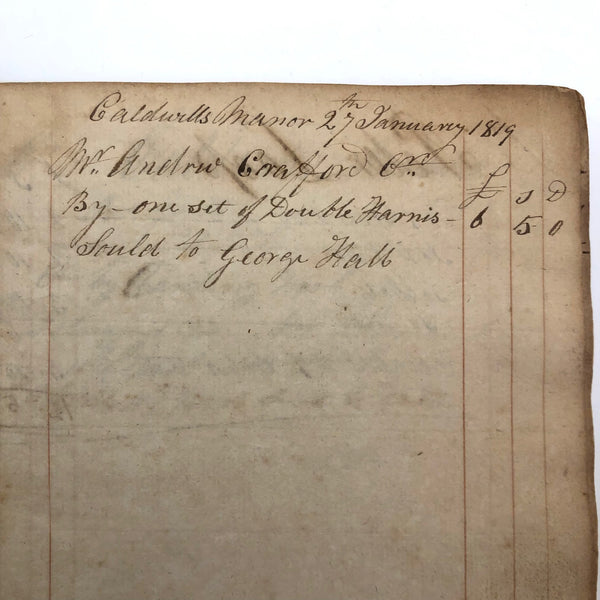 Caldwells Manor 27th January 1819
Mr. Andrw Crafford Cr.
£ s D
By - one set of Double Harnis - 6 5 0
Sould to George Hall